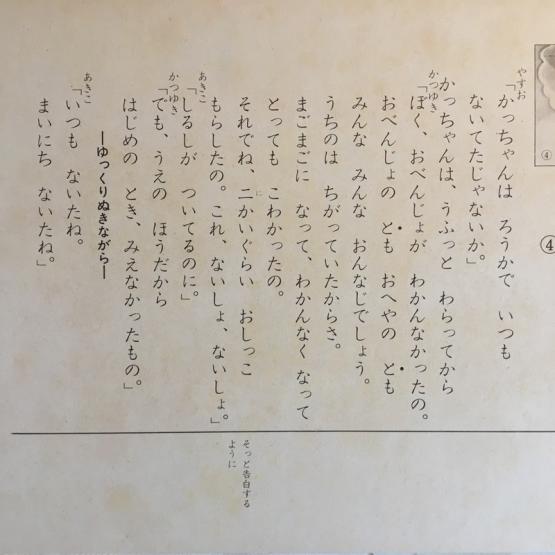 ④
④
やすお
「かっちゃんは　ろうかで　いつも
ないてたじゃないか。」
かっちゃんは、うふっと　わらってから
かつゆき
「ぼく、おべんじょが　わかんなかったの。
おべんじょの　とも　おへやの　とも
みんな　みんな　おんなじでしょう。
うちのは　ちがっていたからさ。
まごまごに　なって、わかんなく　なって
とっても　こわかったの。
それでね、二かいぐらい　おしっこ
に
もらしたの。これ、ないしょ、ないしょ。」
あきこ
「しるしが　ついてるのに。」
かつゆき
「でも、うえの　ほうだから
はじめの　とき、みえなかったもの。」
―ゆっくりぬきながら―
あきこ
「いつも　ないたね。
まいにち　ないたね。」
そっと告白する
ように